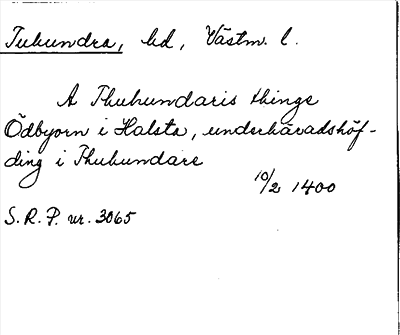 Tuhundra, hd, Västm. l.
A Thuhundaris things
Ödbyorn i Halsta, underhäradshöf-
ding i Thuhundare
10/2 1400
S.R.P. nr. 3065